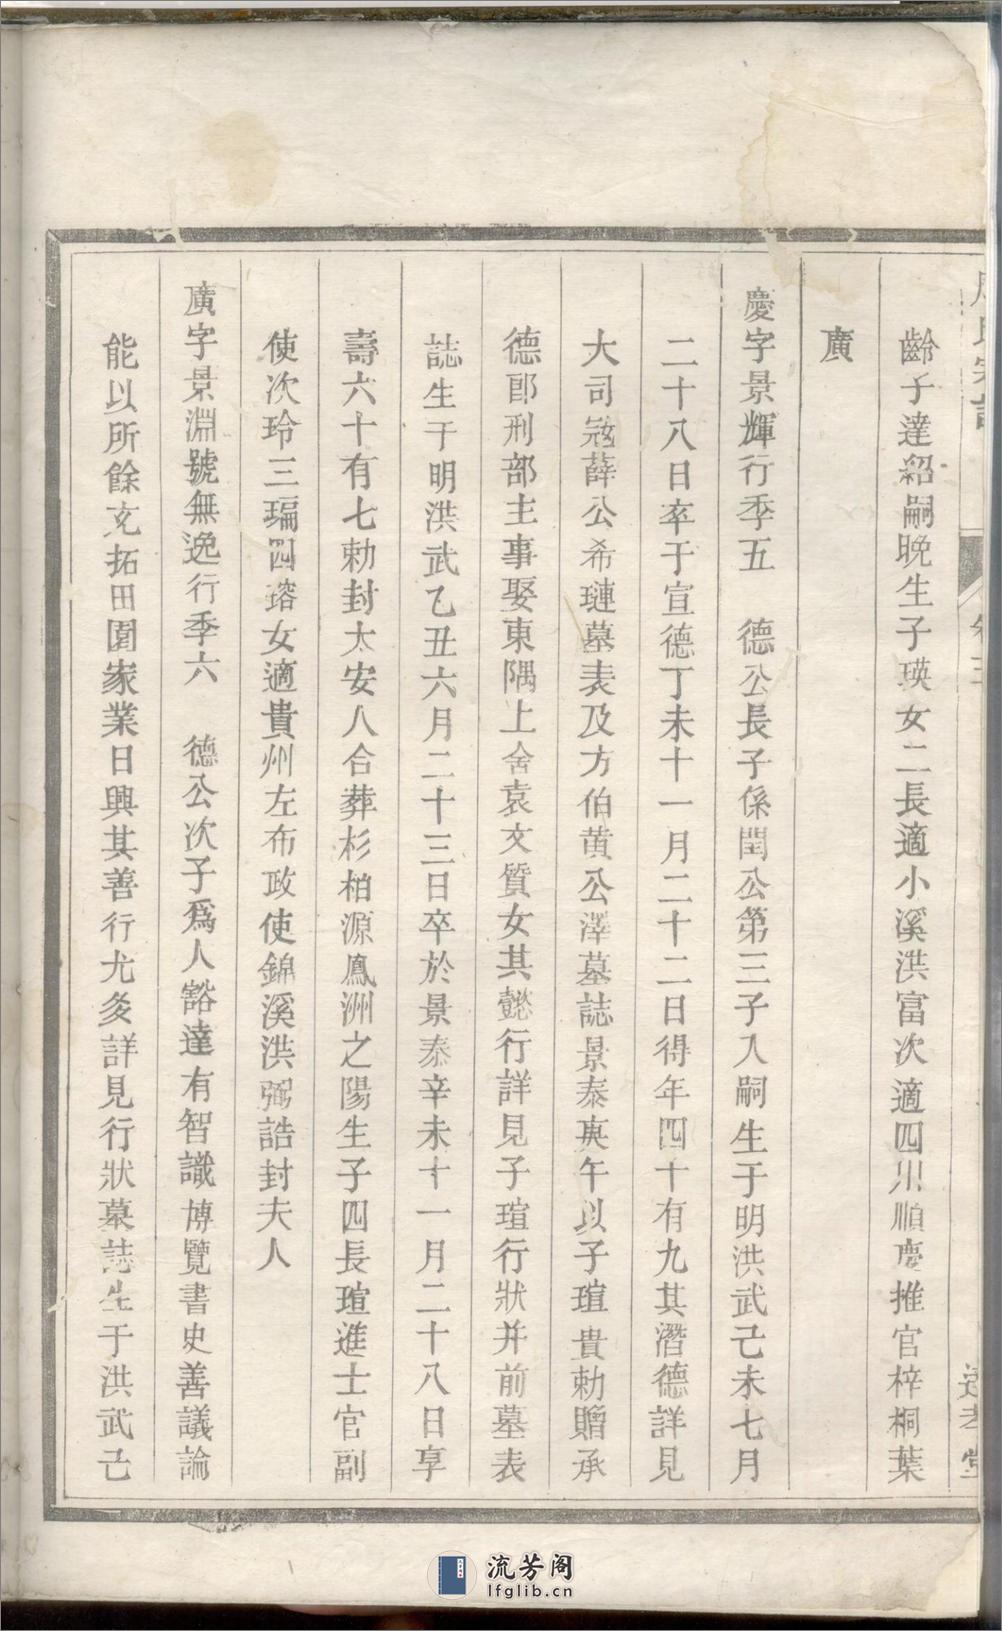 齡子達紹嗣晚生子瑛女二長適小溪洪富次適四川順慶推官梓桐葉
廣
慶字景輝行季五　德公長子係閏公第三子入嗣生于明洪武己未七月
二十八日卒于宣德丁未十一月二十二日得年四十有九其潛德詳見
大司寇薛公希璉墓表及方伯黄公澤墓誌景泰庚午以子瑄貴勅贈承
德郎刑部主事娶東隅上舍袁文質女其懿行詳見子瑄行狀并前墓表
誌生于明洪武乙丑六月二十三日卒於景泰辛未十一月二十八日享
壽六十有七勅封太安人合葬杉柏源鳳洲之陽生子四長瑄進士官副
使次玲三瑞四瑢女適貴州左布政使錦溪洪弼誥封夫人
廣字景淵號無逸行季六　德公次子爲人豁達有智識博覽書史善議論
能以所餘充拓田園家業日興其善行尤多詳見行狀墓誌生于洪武己
流芳阁
lfglib.cn